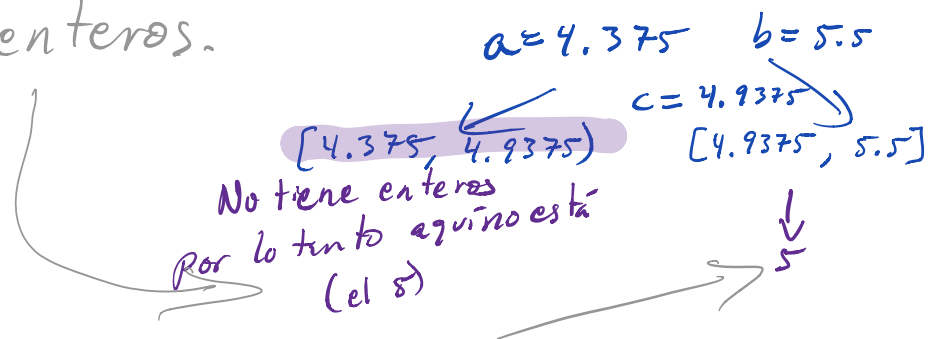 enteros.
a = 4.375 b = 5.5
c = 4.9375
[4.375, 4.9375) [4.9375, 5.5]
No tiene enteros
Por lo tanto aquí no está
(el 5)
5